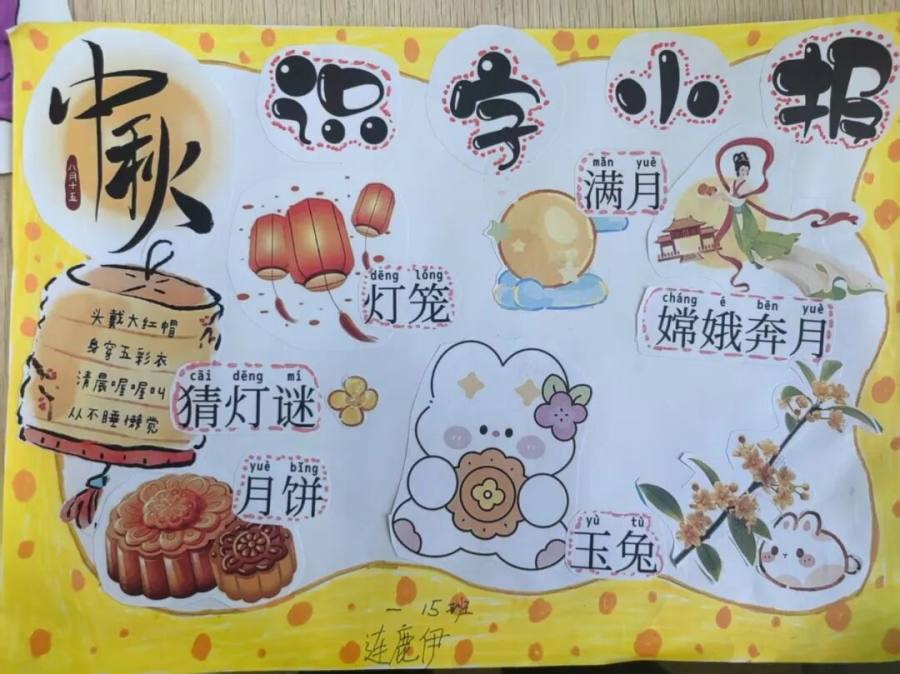 中秋
八月十五
识字小报
mǎn yuè
满月
dēng lóng
灯笼
cháng é bēn yuè
嫦娥奔月
头戴大红帽
身穿五彩衣
清晨喔喔叫
从不睡懒觉
cāi dēng mí
猜灯谜
yuè bǐng
月饼
yù tù
玉兔
一 15班
连鹿伊